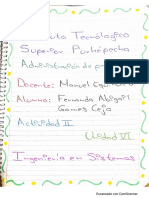 Instituto Tecnológico
Superior Purhépecha
Administración de
Docente: Manuel
Alumna: Fernanda Abigail
Gomes Ceja
Actividad II
Unidad VI
Ingeniería en Sistemas
Escaneado con CamScanner